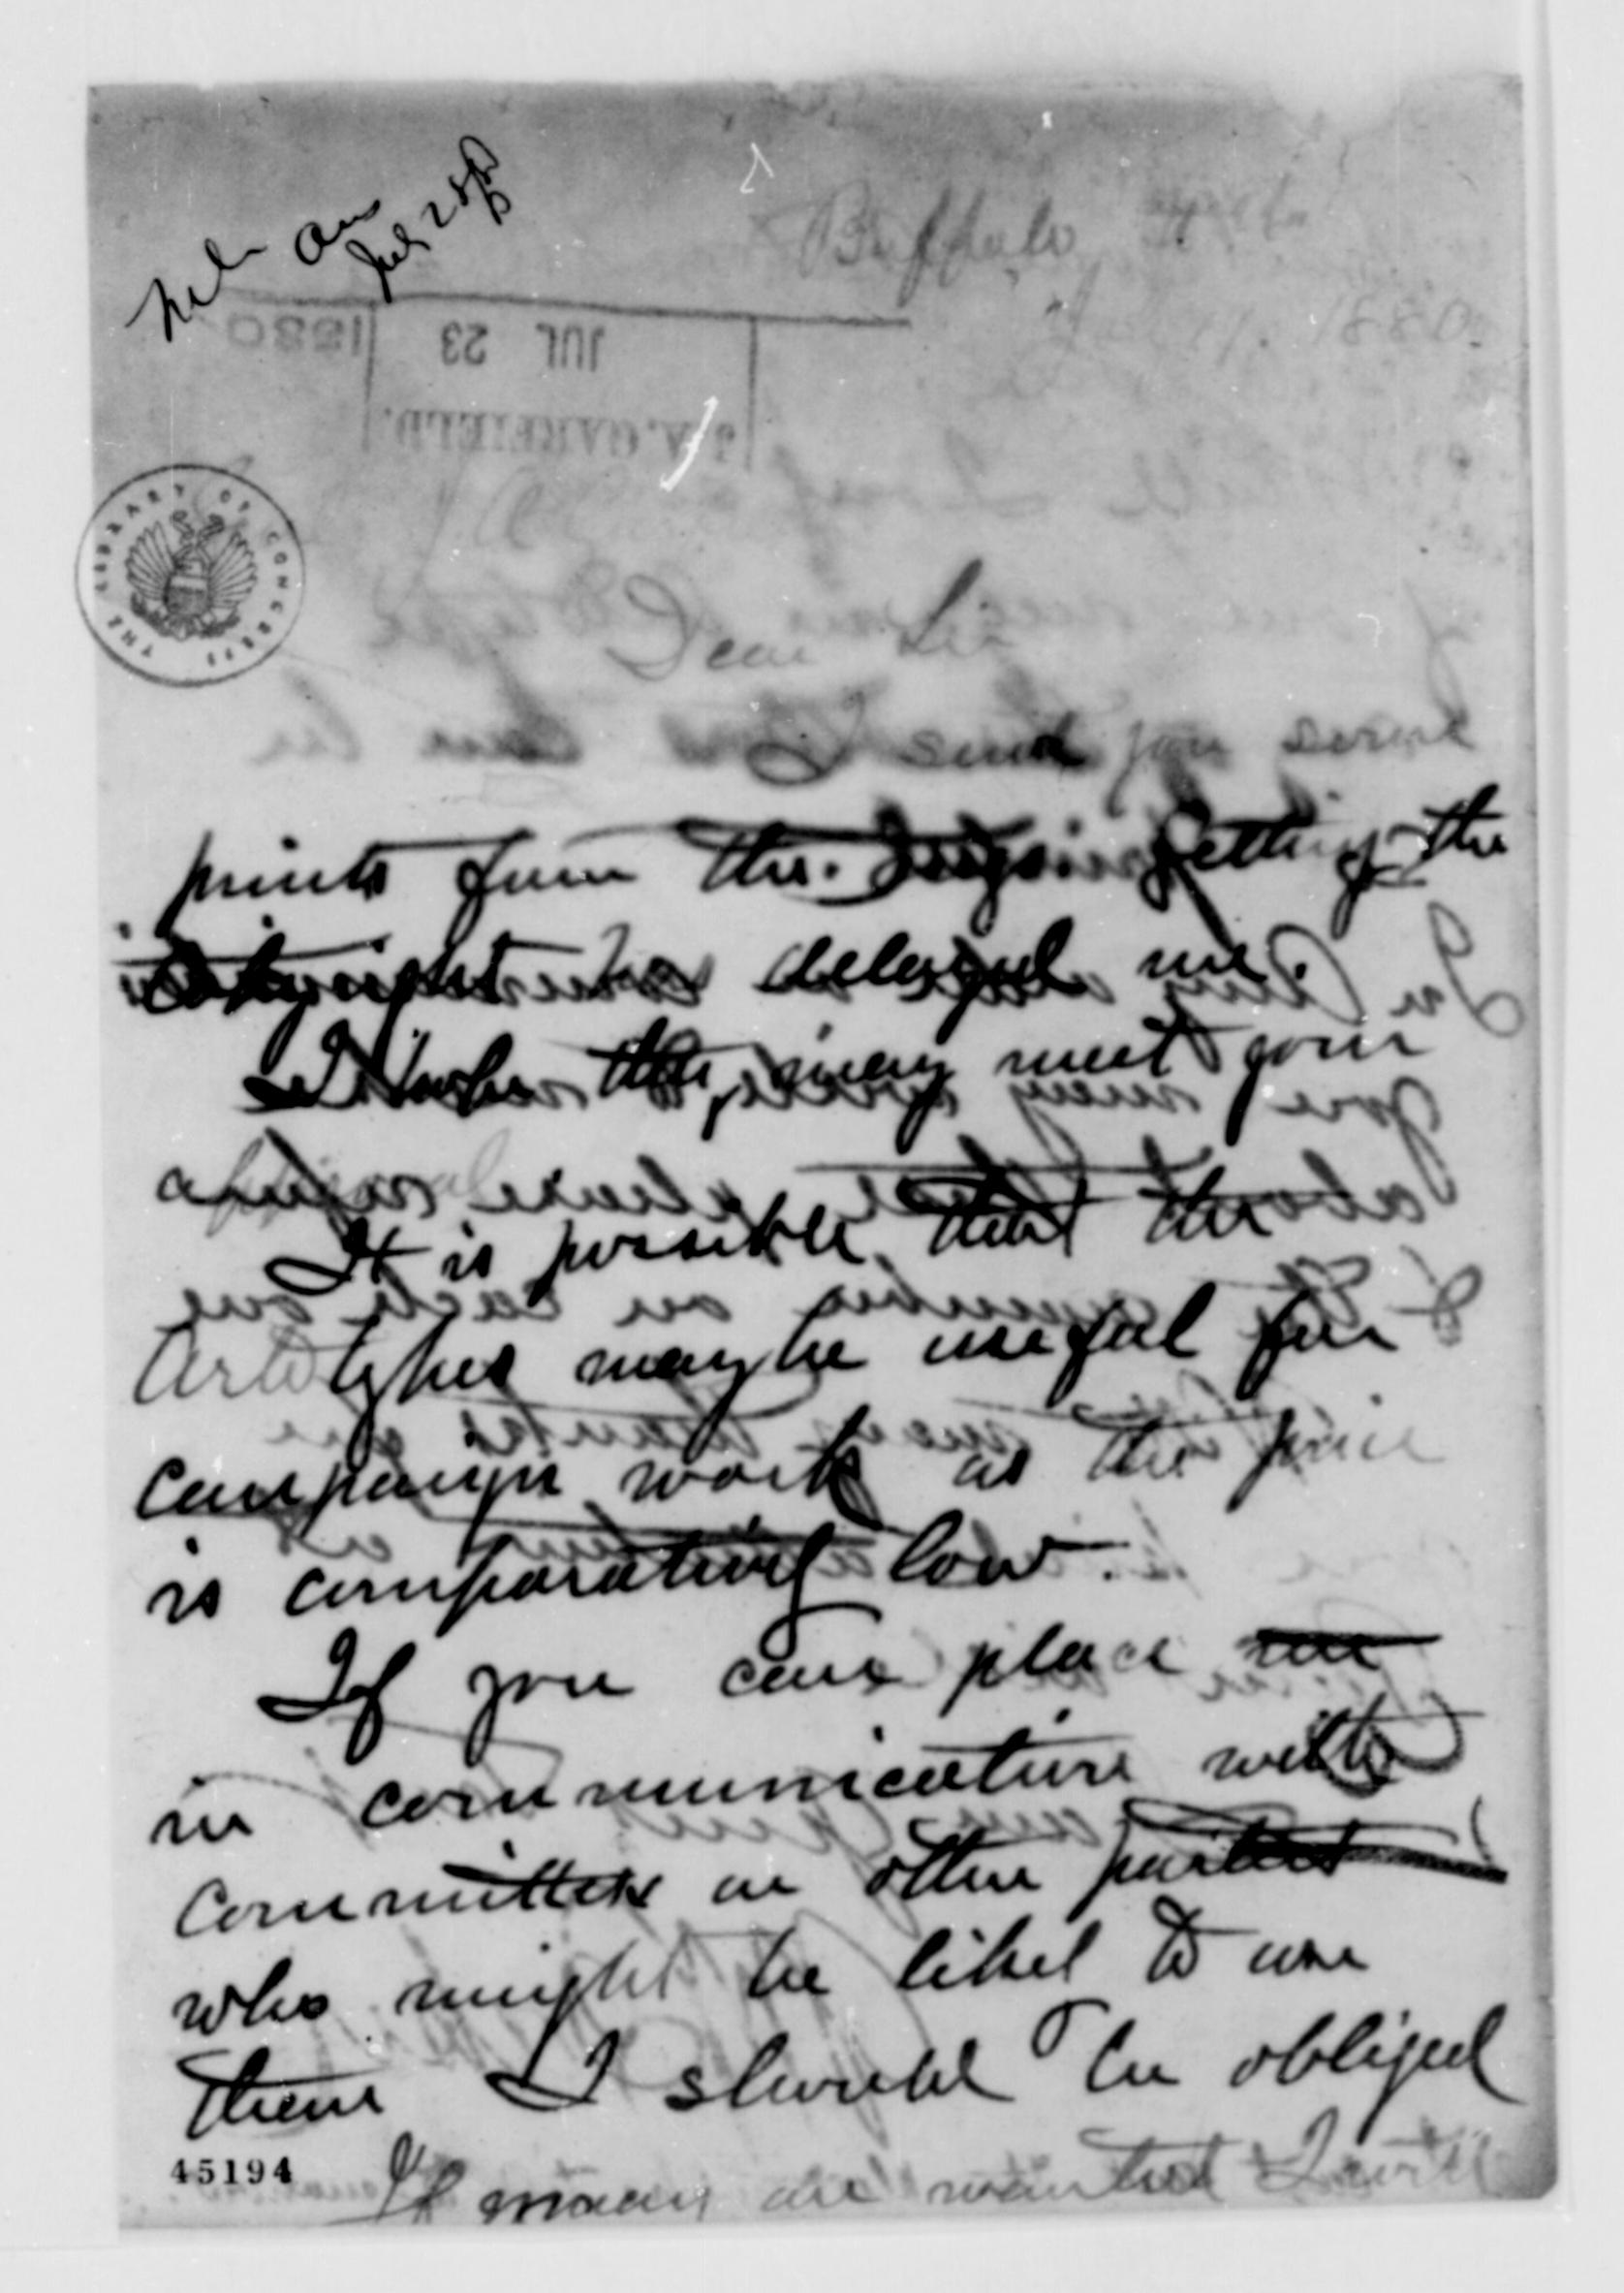 Buffalo
1880.
JUL 23 1880
J. A. GARFIELD.
THE LIBRARY OF CONGRESS
Dear Sir
I send you some
prints from the. Getting the
Copyright has delayed me
I hope they may meet your
approval
It is possible that the
Artotypes may be useful for
campaign work as the price
is comparatively low.
If you can place me
in communication with
committees or other parties
who might be likel to use
them I should be obliged
45194
If many are wanted I will